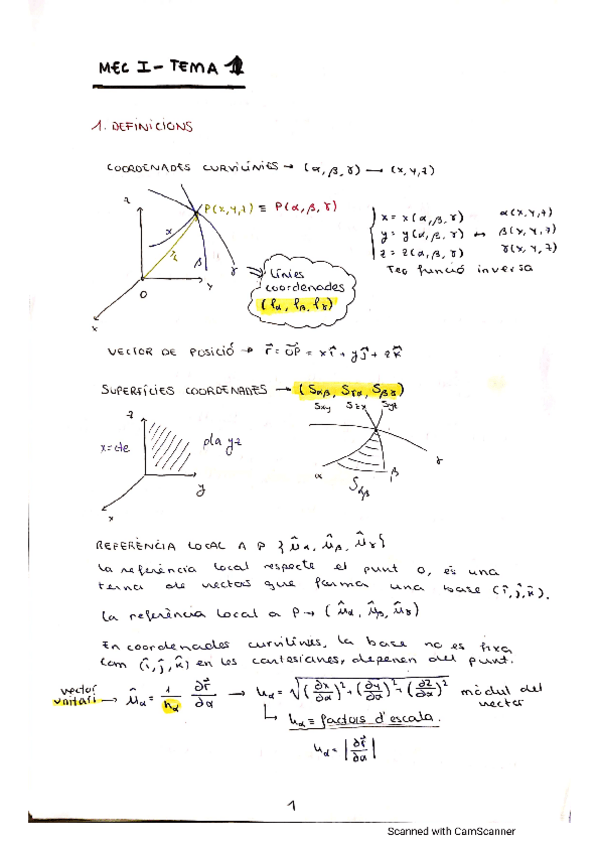 MEC I - TEMA 1
1. DEFINICIONS
COORDENADES CURVILÍNIES → (α, β, γ) → (x, y, z)
z
P(x, y, z) ≡ P(α, β, γ)
α
r
β
γ
y
O
x
Línies
coordenades
(lα, lβ, lγ)
x = x(α, β, γ) α(x, y, z)
y = y(α, β, γ) ↔ β(x, y, z)
z = z(α, β, γ) γ(x, y, z)
Teo funció inversa
VECTOR DE POSICIÓ → r⃗ = OP⃗ = x î + y ĵ + z k̂
SUPERFÍCIES COORDENADES → (Sαβ, Sγα, Sβγ)
Sxy Szx Syz
z
x = cte
pla yz
y
x
α
β
γ
Sαβ
REFERÈNCIA LOCAL A P {ûα, ûβ, ûγ}
La referència local respecte el punt O, és una
terna de vectors que forma una base (î, ĵ, k̂).
La referència local a P → (ûα, ûβ, ûγ)
En coordenades curvilínies, la base no es fixa
com (î, ĵ, k̂) en les cartesianes, depenen del punt.
vector
unitari → ûα = 1/hα ∂r⃗/∂α → hα = √((∂x/∂α)² + (∂y/∂α)² + (∂z/∂α)²) mòdul del
vector
↳ hα ≡ factors d'escala.
hα = |∂r⃗/∂α|
1
Scanned with CamScanner